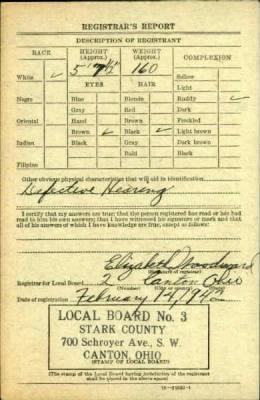 REGISTRAR'S REPORT
DESCRIPTION OF REGISTRANT
RACE HEIGHT (Approx.) WEIGHT (Approx.) COMPLEXION
White ✓ 5' 7½" 160 Sallow
EYES HAIR Light
Negro Blue Blonde Ruddy ✓
Gray Red Dark
Oriental Hazel Brown Freckled
Brown ✓ Black ✓ Light brown
Indian Black Gray Dark brown
Bald Black
Filipino
Other obvious physical characteristics that will aid in identification
Defective Hearing
I certify that my answers are true; that the person registered has read or has had
read to him his own answers; that I have witnessed his signature or mark and that
all of his answers of which I have knowledge are true, except as follows:
Elizabeth Woodward
(Signature of registrar)
Registrar for Local Board 2 Canton Ohio
(Number) (City or county)
Date of registration February 14, 1942
LOCAL BOARD No. 3
STARK COUNTY
700 Schroyer Ave., S. W.
CANTON, OHIO
(STAMP OF LOCAL BOARD)
(The stamp of the Local Board having jurisdiction of the registrant
shall be placed in the above space.)